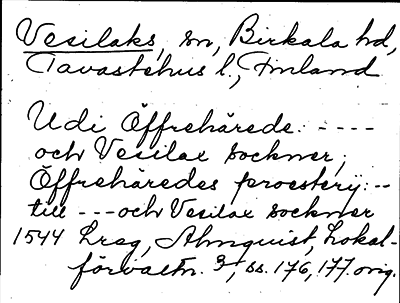 Vesilaks, sn, Birkala hd,
Tavastehus l., Finland
Udi Öffrehärede: ----
och Vesilax sockner;
Öffrehäredes proestery: --
till --- och Vesilax sockner
1544 Lreg, Almquist, Lokal-
förvaltn. 3, ss. 176, 177. orig.